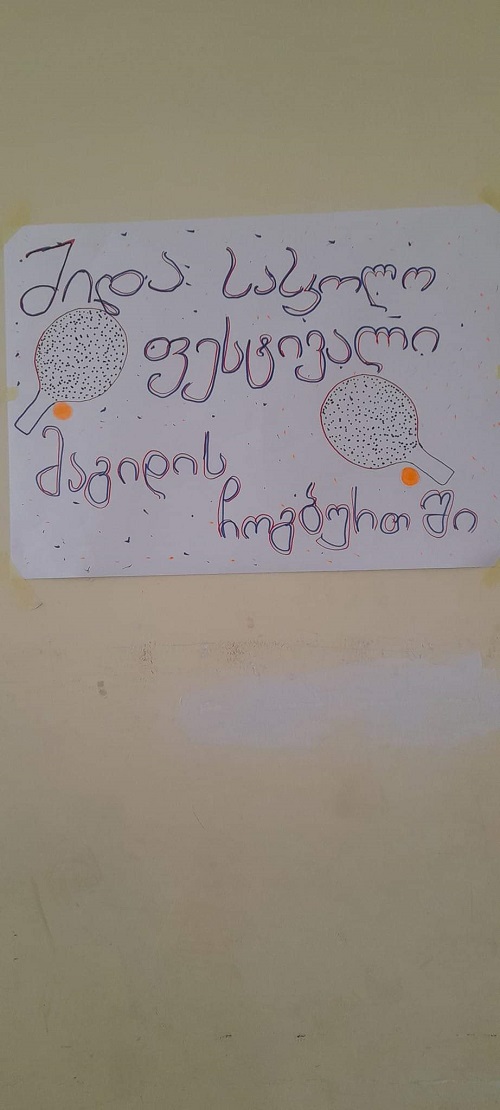 შიდა სასკოლო
ფესტივალი
მაგიდის
ჩოგბურთში